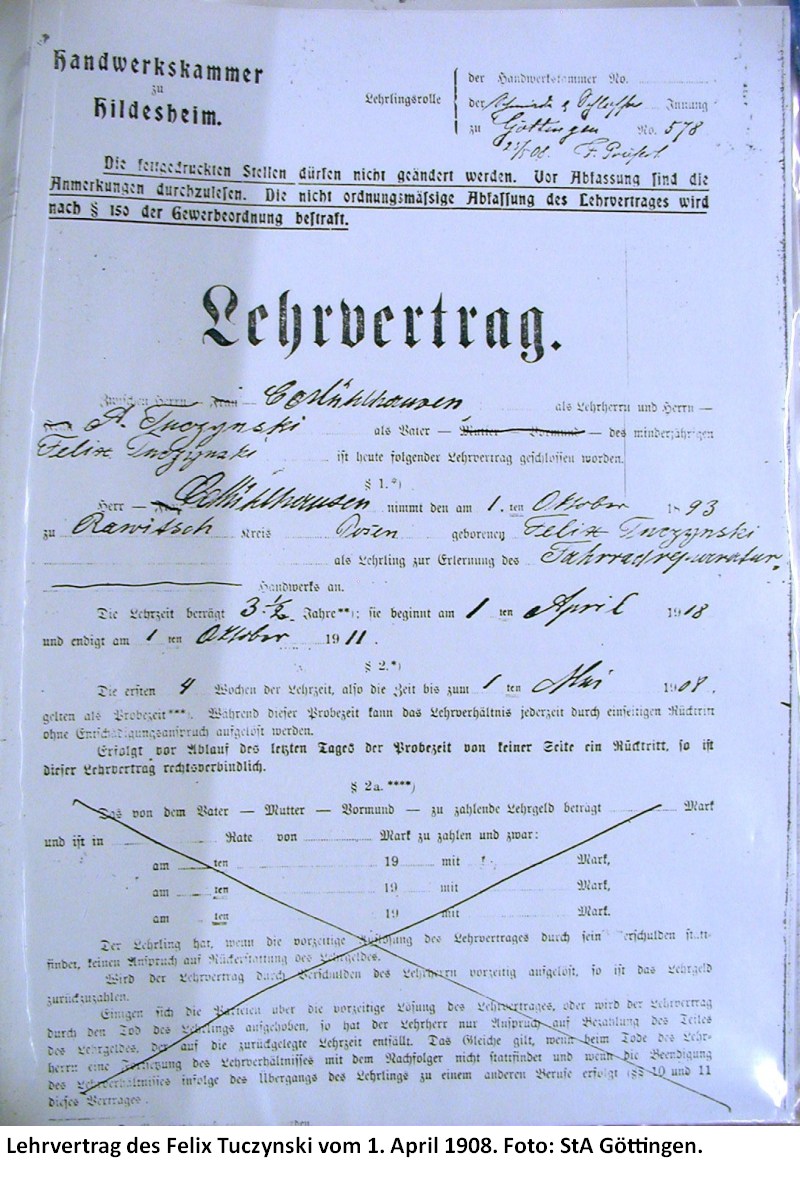 Handwerkskammer
zu
Hildesheim.
Lehrlingsrolle
der Handwerkskammer No.
der Schmiede & Schlosser Innung
zu Göttingen No. 578
Die fettgedruckten Stellen dürfen nicht geändert werden. Vor Abfassung sind die
Anmerkungen durchzulesen. Die nicht ordnungsmäßige Abfassung des Lehrvertrages wird
nach § 150 der Gewerbeordnung bestraft.
Lehrvertrag.
Zwischen Herrn — Frau — C Mühlhausen als Lehrherrn und Herrn —
A. Tuczynski als Vater — Mutter — Vormund — des minderjährigen
Felix Tuczynski ist heute folgender Lehrvertrag geschlossen worden.
§ 1.*)
Herr — C Mühlhausen nimmt den am 1. ten Oktober 1893
zu Rawitsch Kreis Posen geborenen Felix Tuczynski
als Lehrling zur Erlernung des Fahrradreparatur
Handwerks an.
Die Lehrzeit beträgt 3 1/2 Jahre**); sie beginnt am 1 ten April 1908
und endigt am 1 ten Oktober 1911.
§ 2.*)
Die ersten 4 Wochen der Lehrzeit, also die Zeit bis zum 1 ten Mai 1908.
gelten als Probezeit***). Während dieser Probezeit kann das Lehrverhältnis jederzeit durch einseitigen Rücktritt
ohne Entschädigungsanspruch aufgelöst werden.
Erfolgt vor Ablauf des letzten Tages der Probezeit von keiner Seite ein Rücktritt, so ist
dieser Lehrvertrag rechtsverbindlich.
§ 2a.****)
Das von dem Vater — Mutter — Vormund — zu zahlende Lehrgeld beträgt Mark
und ist in Rate von Mark zu zahlen und zwar:
am ten 19 mit Mark,
am ten 19 mit Mark,
am ten 19 mit Mark.
Der Lehrling hat, wenn die vorzeitige Auflösung des Lehrvertrages durch sein Verschulden statt-
findet, keinen Anspruch auf Rückerstattung des Lehrgeldes.
Wird der Lehrvertrag durch Verschulden des Lehrherrn vorzeitig aufgelöst, so ist das Lehrgeld
zurückzuzahlen.
Einigen sich die Parteien über die vorzeitige Lösung des Lehrvertrages, oder wird der Lehrvertrag
durch den Tod des Lehrlings aufgehoben, so hat der Lehrherr nur Anspruch auf Bezahlung des Teiles
des Lehrgeldes, der auf die zurückgelegte Lehrzeit entfällt. Das Gleiche gilt, wenn beim Tode des Lehr-
herrn eine Fortsetzung des Lehrverhältnisses mit dem Nachfolger nicht stattfindet und wenn die Beendigung
des Lehrverhältnisses infolge des Übergangs des Lehrlings zu einem anderen Berufe erfolgt (§§ 10 und 11
dieses Vertrages.
Lehrvertrag des Felix Tuczynski vom 1. April 1908. Foto: StA Göttingen.